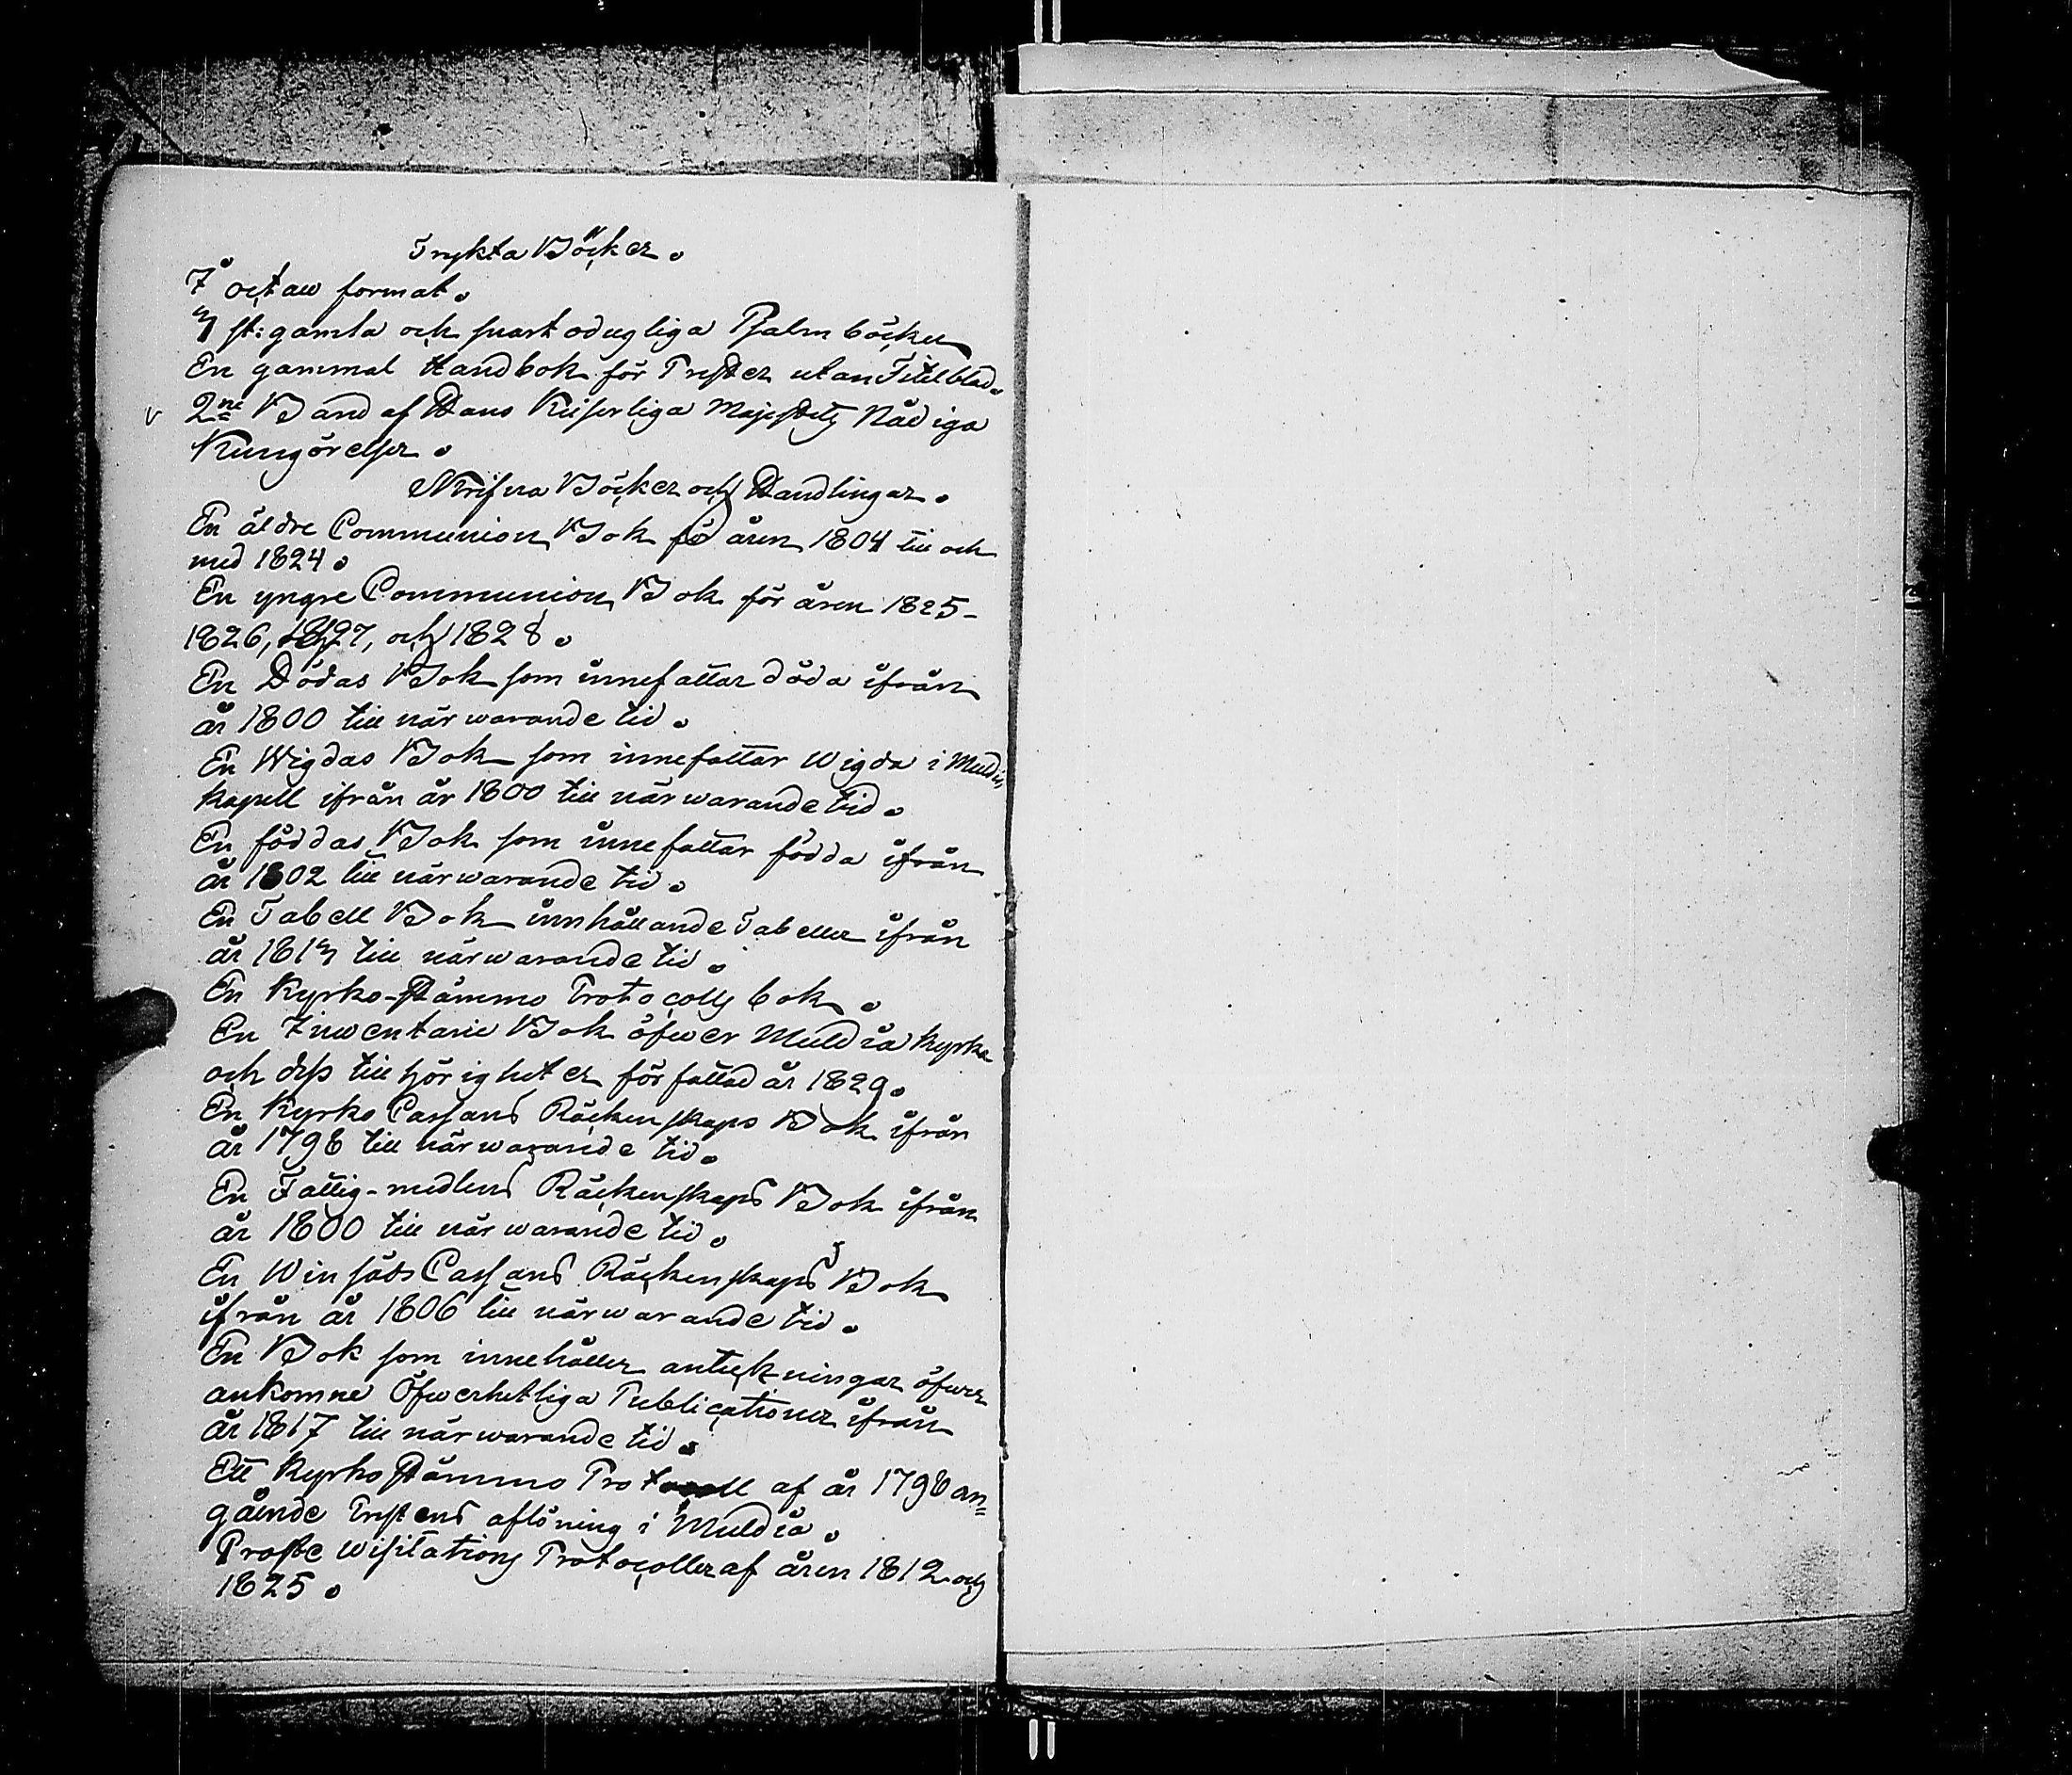 Trykta Böcker.
I octaw format.
3 st: gamla och snart odugliga Psalmböcker
En gammal Handbok för Prester utan Titelblad.
v 2ne Band af Hans Keiserliga Majestets Nådiga
Kungörelser.
Skrifna Böcker och Handlingar.
En äldre Communion Bok för åren 1804 till och
med 1824.
En yngre Communion Bok för åren 1825-
1826, 1827, och 1828.
En Dödas Bok som innefattar döda ifrån
år 1800 till närwarande tid.
En Wigdas Bok som innefattar wigda i Muldia
kapell ifrån år 1800 till närwarande tid.
En föddas Bok som innefattar födda ifrån
år 1802 till närwarande tid.
En Tabell Bok innhållande Tabeller ifrån
år 1813 till närwarande tid.
En Kyrko-Stämmo Protocolls bok.
En Inwentarie Bok öfwer Muldia kyrka
och dess tillhörigheter författad år 1829.
En Kyrko Cassans Räckenskaps Bok ifrån
år 1798 till närwarande tid.
En Fattig-medlens Räckenskaps Bok ifrån
år 1800 till närwarande tid.
En Winsäds Cassans Räckenskaps Bok
ifrån år 1806 till närwarande tid.
En Bok som innehåller anteckningar öfwer
ankomne Öfwerhetliga Publicationer ifrån
år 1817 till närwarande tid.
Ett Kyrko Stämmo Protocoll af år 1798 an=
gående Prestens aflöning i Muldia.
Proste wisitations Protocoller af åren 1812 och
1825.